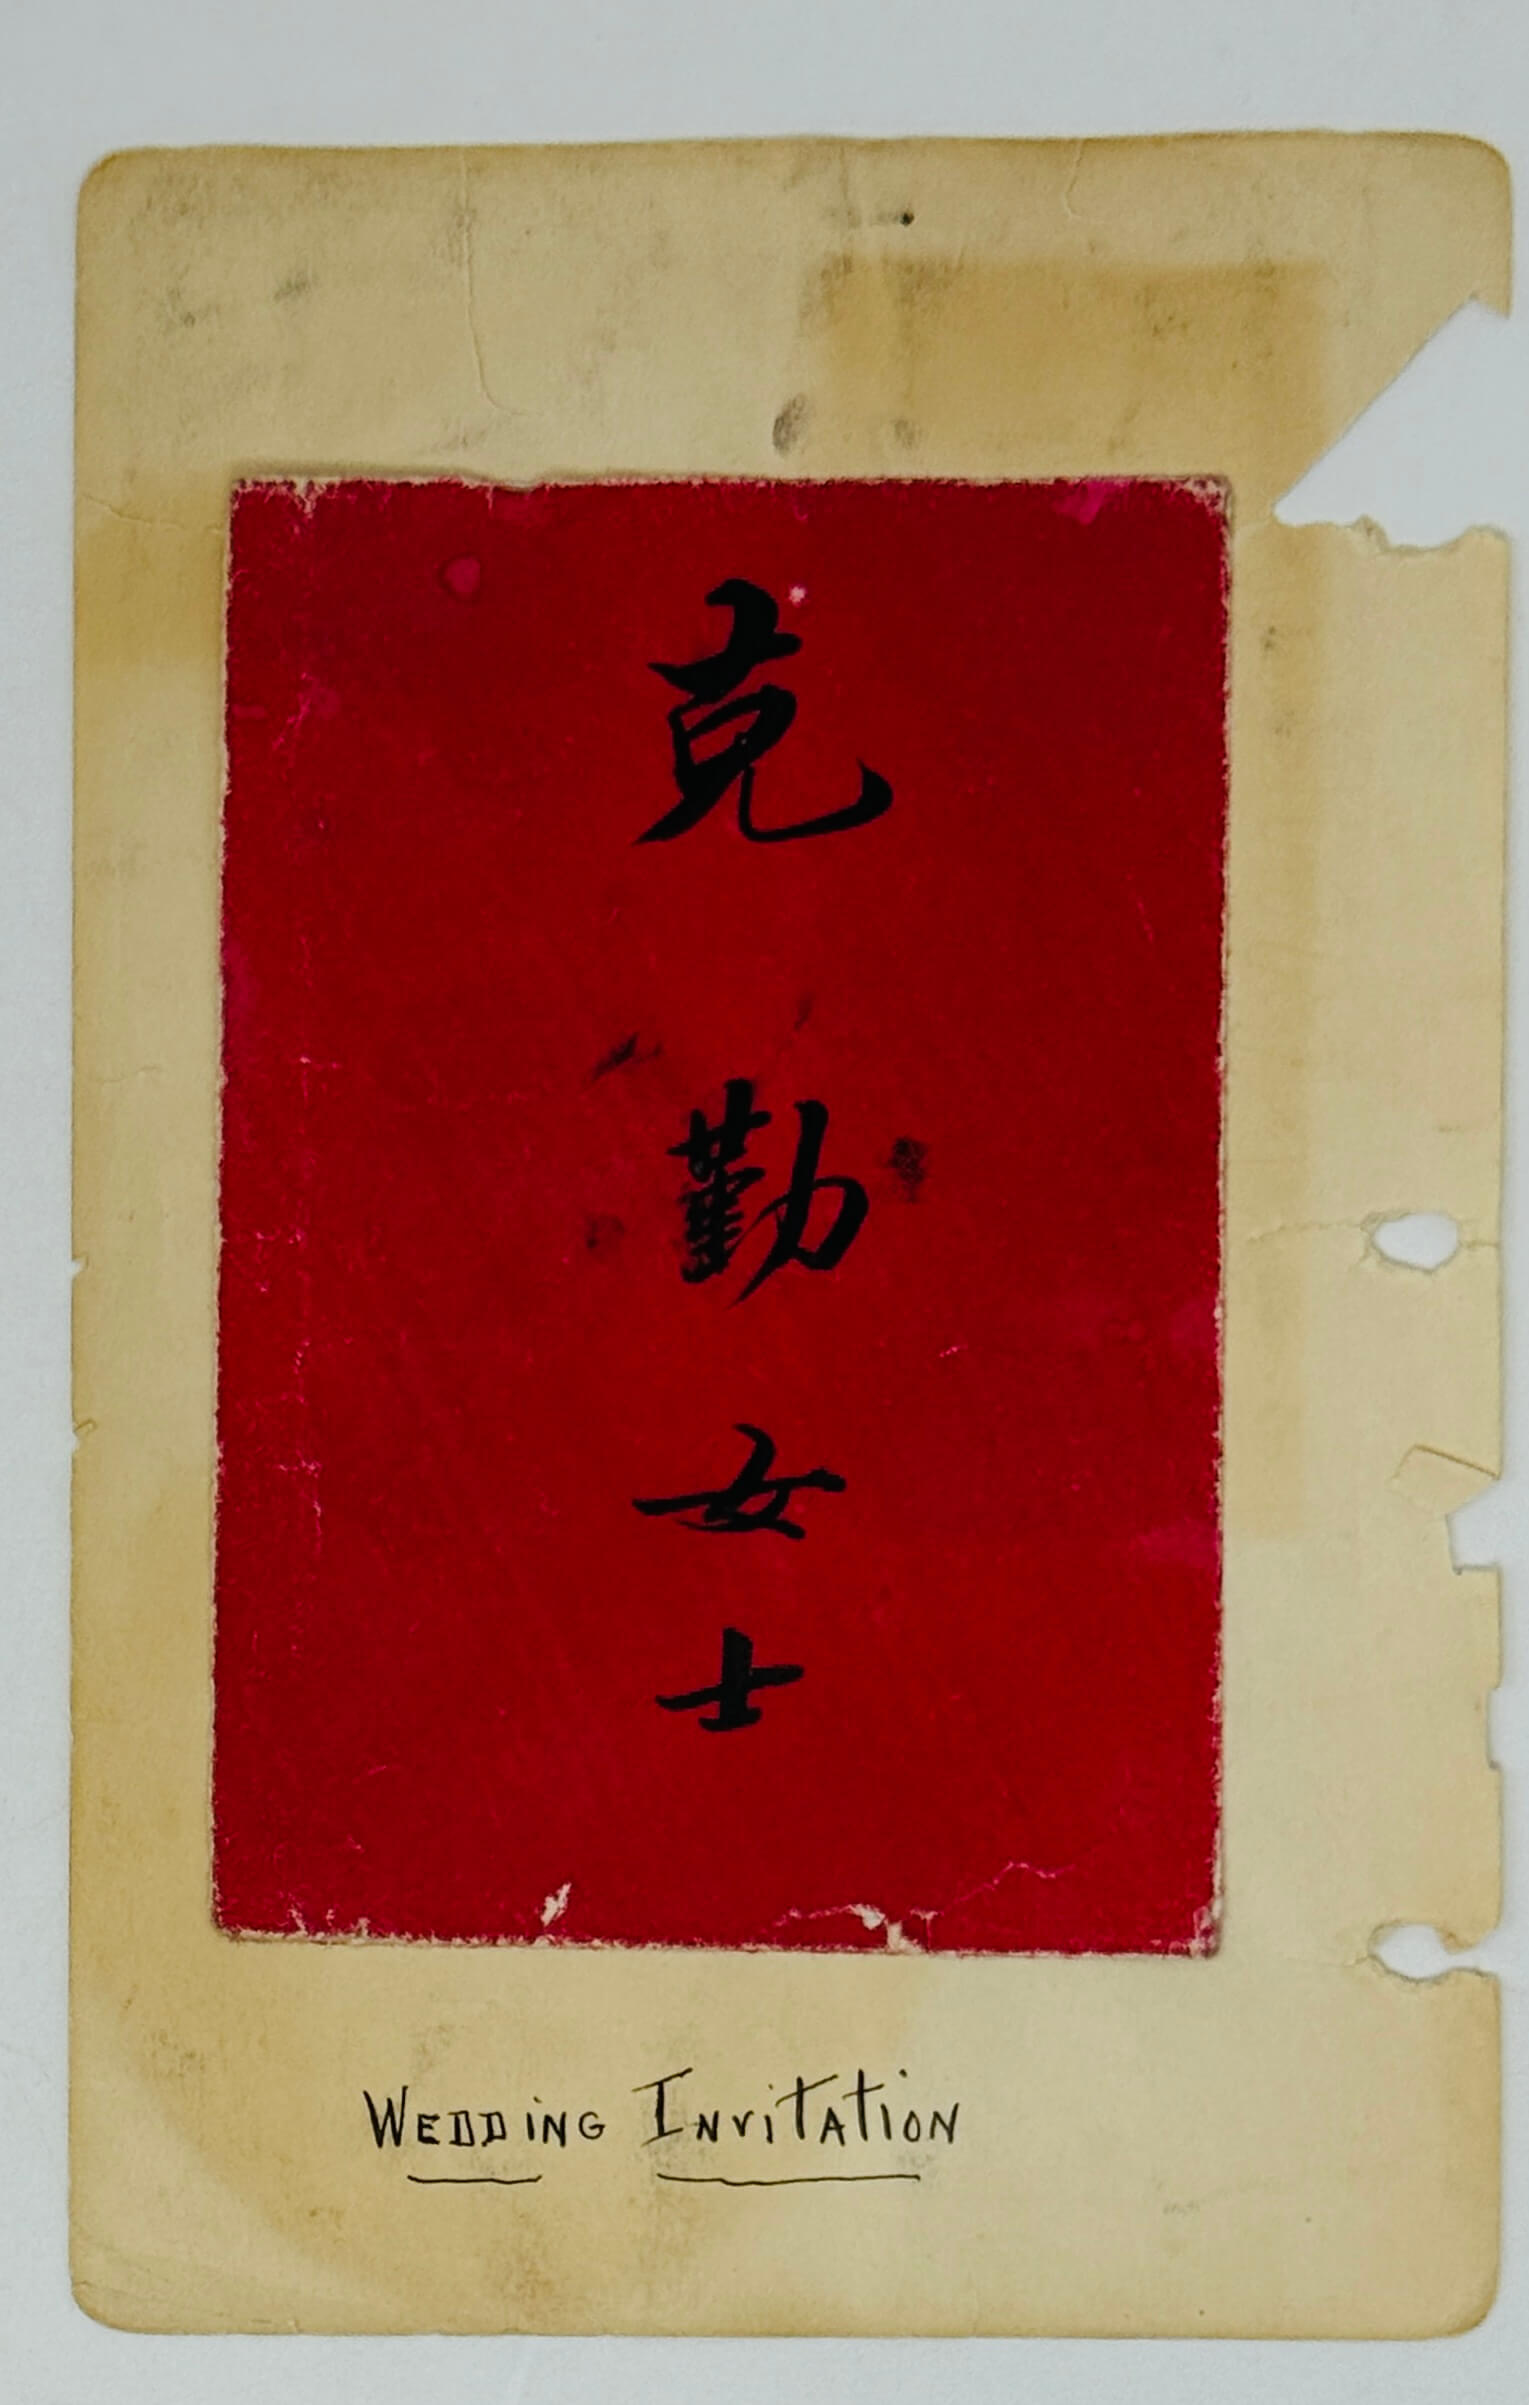 克勤女士
Wedding Invitation